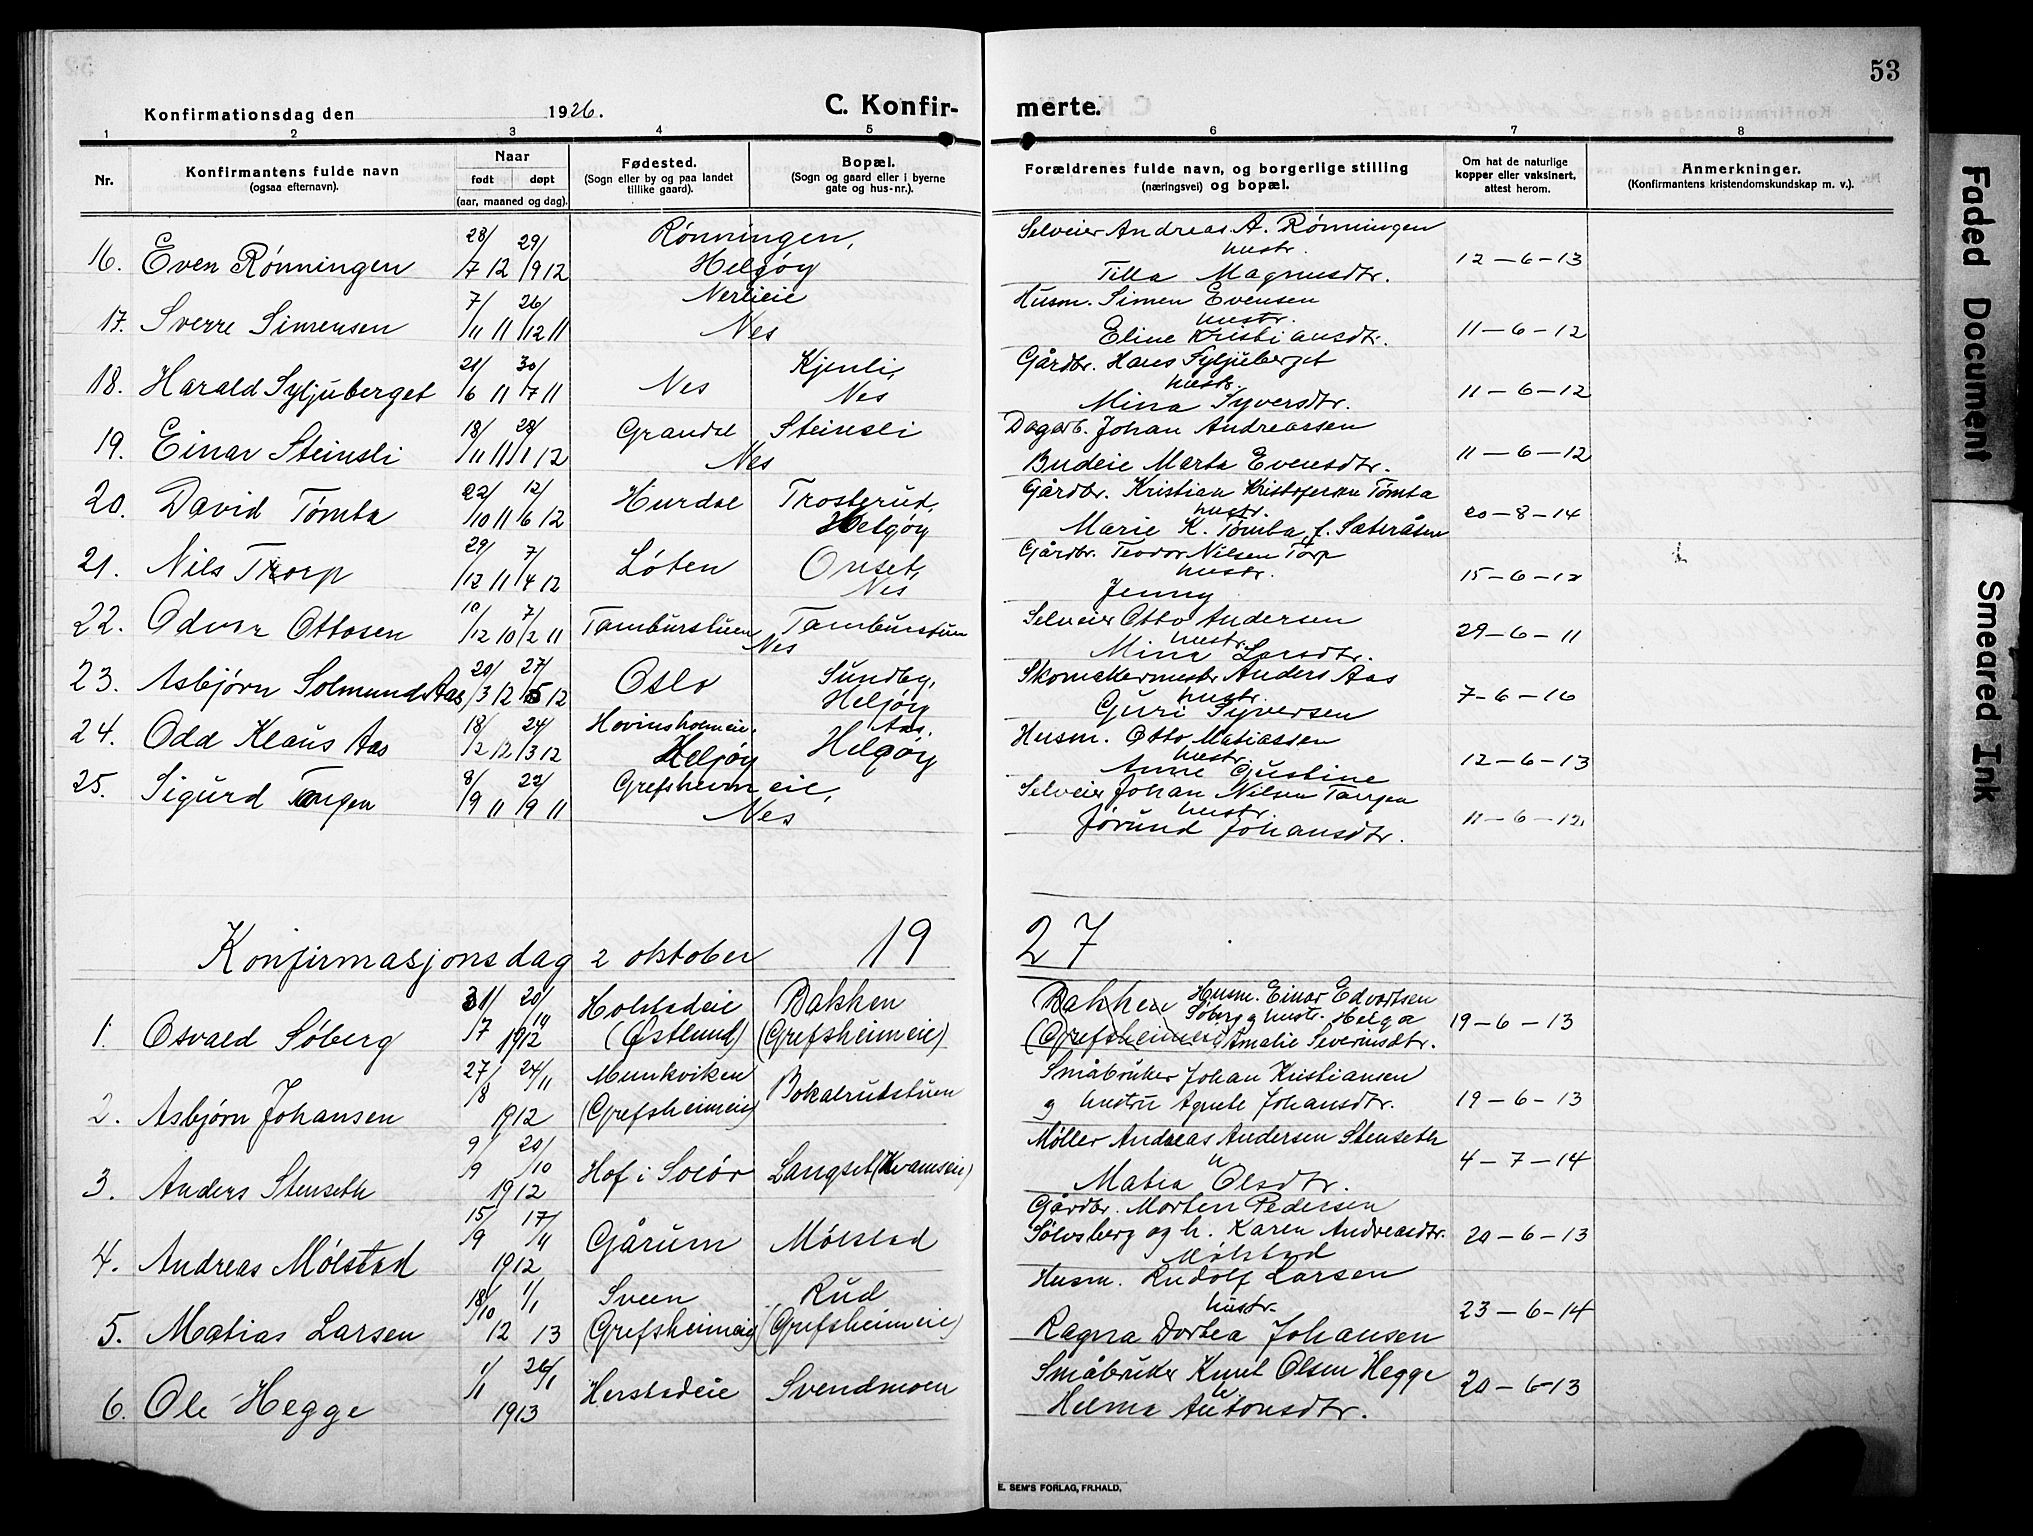 53
Konfirmationsdag den 1926.
C. Konfir-
merte.
1 2 3 4 5 6 7 8
Nr.
Konfirmantens fulde navn
(ogsaa efternavn).
Naar
født døpt
(aar, maaned og dag).
Fødested.
(Sogn eller by og paa landet
tillike gaard).
Bopæl.
(Sogn og gaard eller i byerne
gate og hus-nr.).
Forældrenes fulde navn, og borgerlige stilling
(næringsvei) og bopæl.
Om hat de naturlige
kopper eller vaksinert,
attest herom.
Anmerkninger.
(Konfirmantens kristendomskundskap m. v.).
16. Even Rønningen 28/7 12 29/9 12 Rønningen, Helgøy Selveier Andreas A. Rønningen
hustr. Tilla Magnusdtr. 12-6-13
17. Sverre Simensen 7/11 11 26/12 11 Nerlieie Nes Husm. Simen Evensen
hustr. Eline Kristiansdtr. 11-6-12
18. Harald Syljuberget 21/6 11 30/7 11 Nes Kjenli, Nes Gårdbr. Hans Syljuberget
hustr. Mina Syversdtr. 11-6-12
19. Einar Steinsli 18/11 11 28/1 12 Grandal Steinsli Nes Dagarb. Johan Andreassen
Budeie Marta Evensdtr. 11-6-12
20. David Tømta 22/10 11 12/6 12 Hurdal Trosterud, Helgøy Gårdbr. Kristian Kristofersen Tømta
hustr. Marie K. Tømta, f. Sæteråsen 20-8-14
21. Nils Torp 29/12 11 7/4 12 Løten Onset, Nes Gårdbr. Teodor Nilsen Torp
hustr. Jenny 15-6-12
22. Odvar Ottosen 10/12 10 7/2 11 Tamburstuen Tamburstuen Nes Selveier Otto Andersen
hustr. Mina Larsdtr. 29-6-11
23. Asbjørn Solmunds Aas 20/3 12 27/5 12 Oslo Sundby, Helgøy Skomakermestr Anders Aas
hustr. Guri Syversen 7-6-16
24. Odd Klaus Aas 18/2 12 24/3 12 Hovinsholmeie, Helgøy Aas, Helgøy Husm. Otto Matiassen
hustr. Anne Gustine 12-6-13
25. Sigurd Tangen 8/9 11 22/9 11 Grefsheimeie, Nes Selveier Johan Nilsen Tangen
hustr. Jørund Johansdtr. 11-6-12
Konfirmasjonsdag 2 oktober 19 27
1. Osvald Søberg 31/7 20/11 1912 Holstadeie (Østlund) Bakken (Grefsheimeie) Bakken (Grefsheimeie) Husm. Einar Edvartsen
Søberg og hustr. Helga
Amalie Severinsdtr. 19-6-13
2. Asbjørn Johansen 27/8 24/11 1912 Munkviken (Grefsheimeie) Bokalrudstuen Småbruker Johan Kristiansen
og hustru Agnete Johansdtr. 19-6-13
3. Anders Stenseth 9/9 20/10 1912 Hof i Solør Langset (Kvamseie) Møller Andreas Andersen Stenseth
" Matia Olsdtr. 4-7-14
4. Andreas Mølstad 15/9 17/11 1912 Gårum Mølstad Gårdbr. Morten Pedersen
Sølvsberg og h. Karen Andreasdtr.
Mølstad 20-6-13
5. Matias Larsen 18/10 12 1/1 13 Sveen (Grefsheimeie) Rud (Grefsheimeie) Husm. Rudolf Larsen
hustr. Ragna Dortea Johansen 23-6-14
6. Ole Hegge 1/1 26/1 1913 Herstadeie Svendmoen Småbruker Knut Olsen Hegge
" Helma Antonsdtr. 20-6-13
E. SEM'S FORLAG, FR.HALD.
Faded Document
Smeared Ink